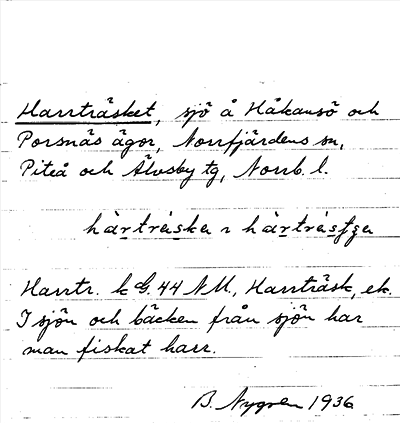 Harrträsket, sjö å Håkansö och
Porsnäs ägor, Norrfjärdens sn,
Piteå och Älvsby tg, Norrb. l.
hàrtràskea hàrtràs
Harrtr. k G. 44 NU., Harrträsk, ek.
I sjön och bäcken från sjön har
man fiskat harr.
B. Nygren 1936